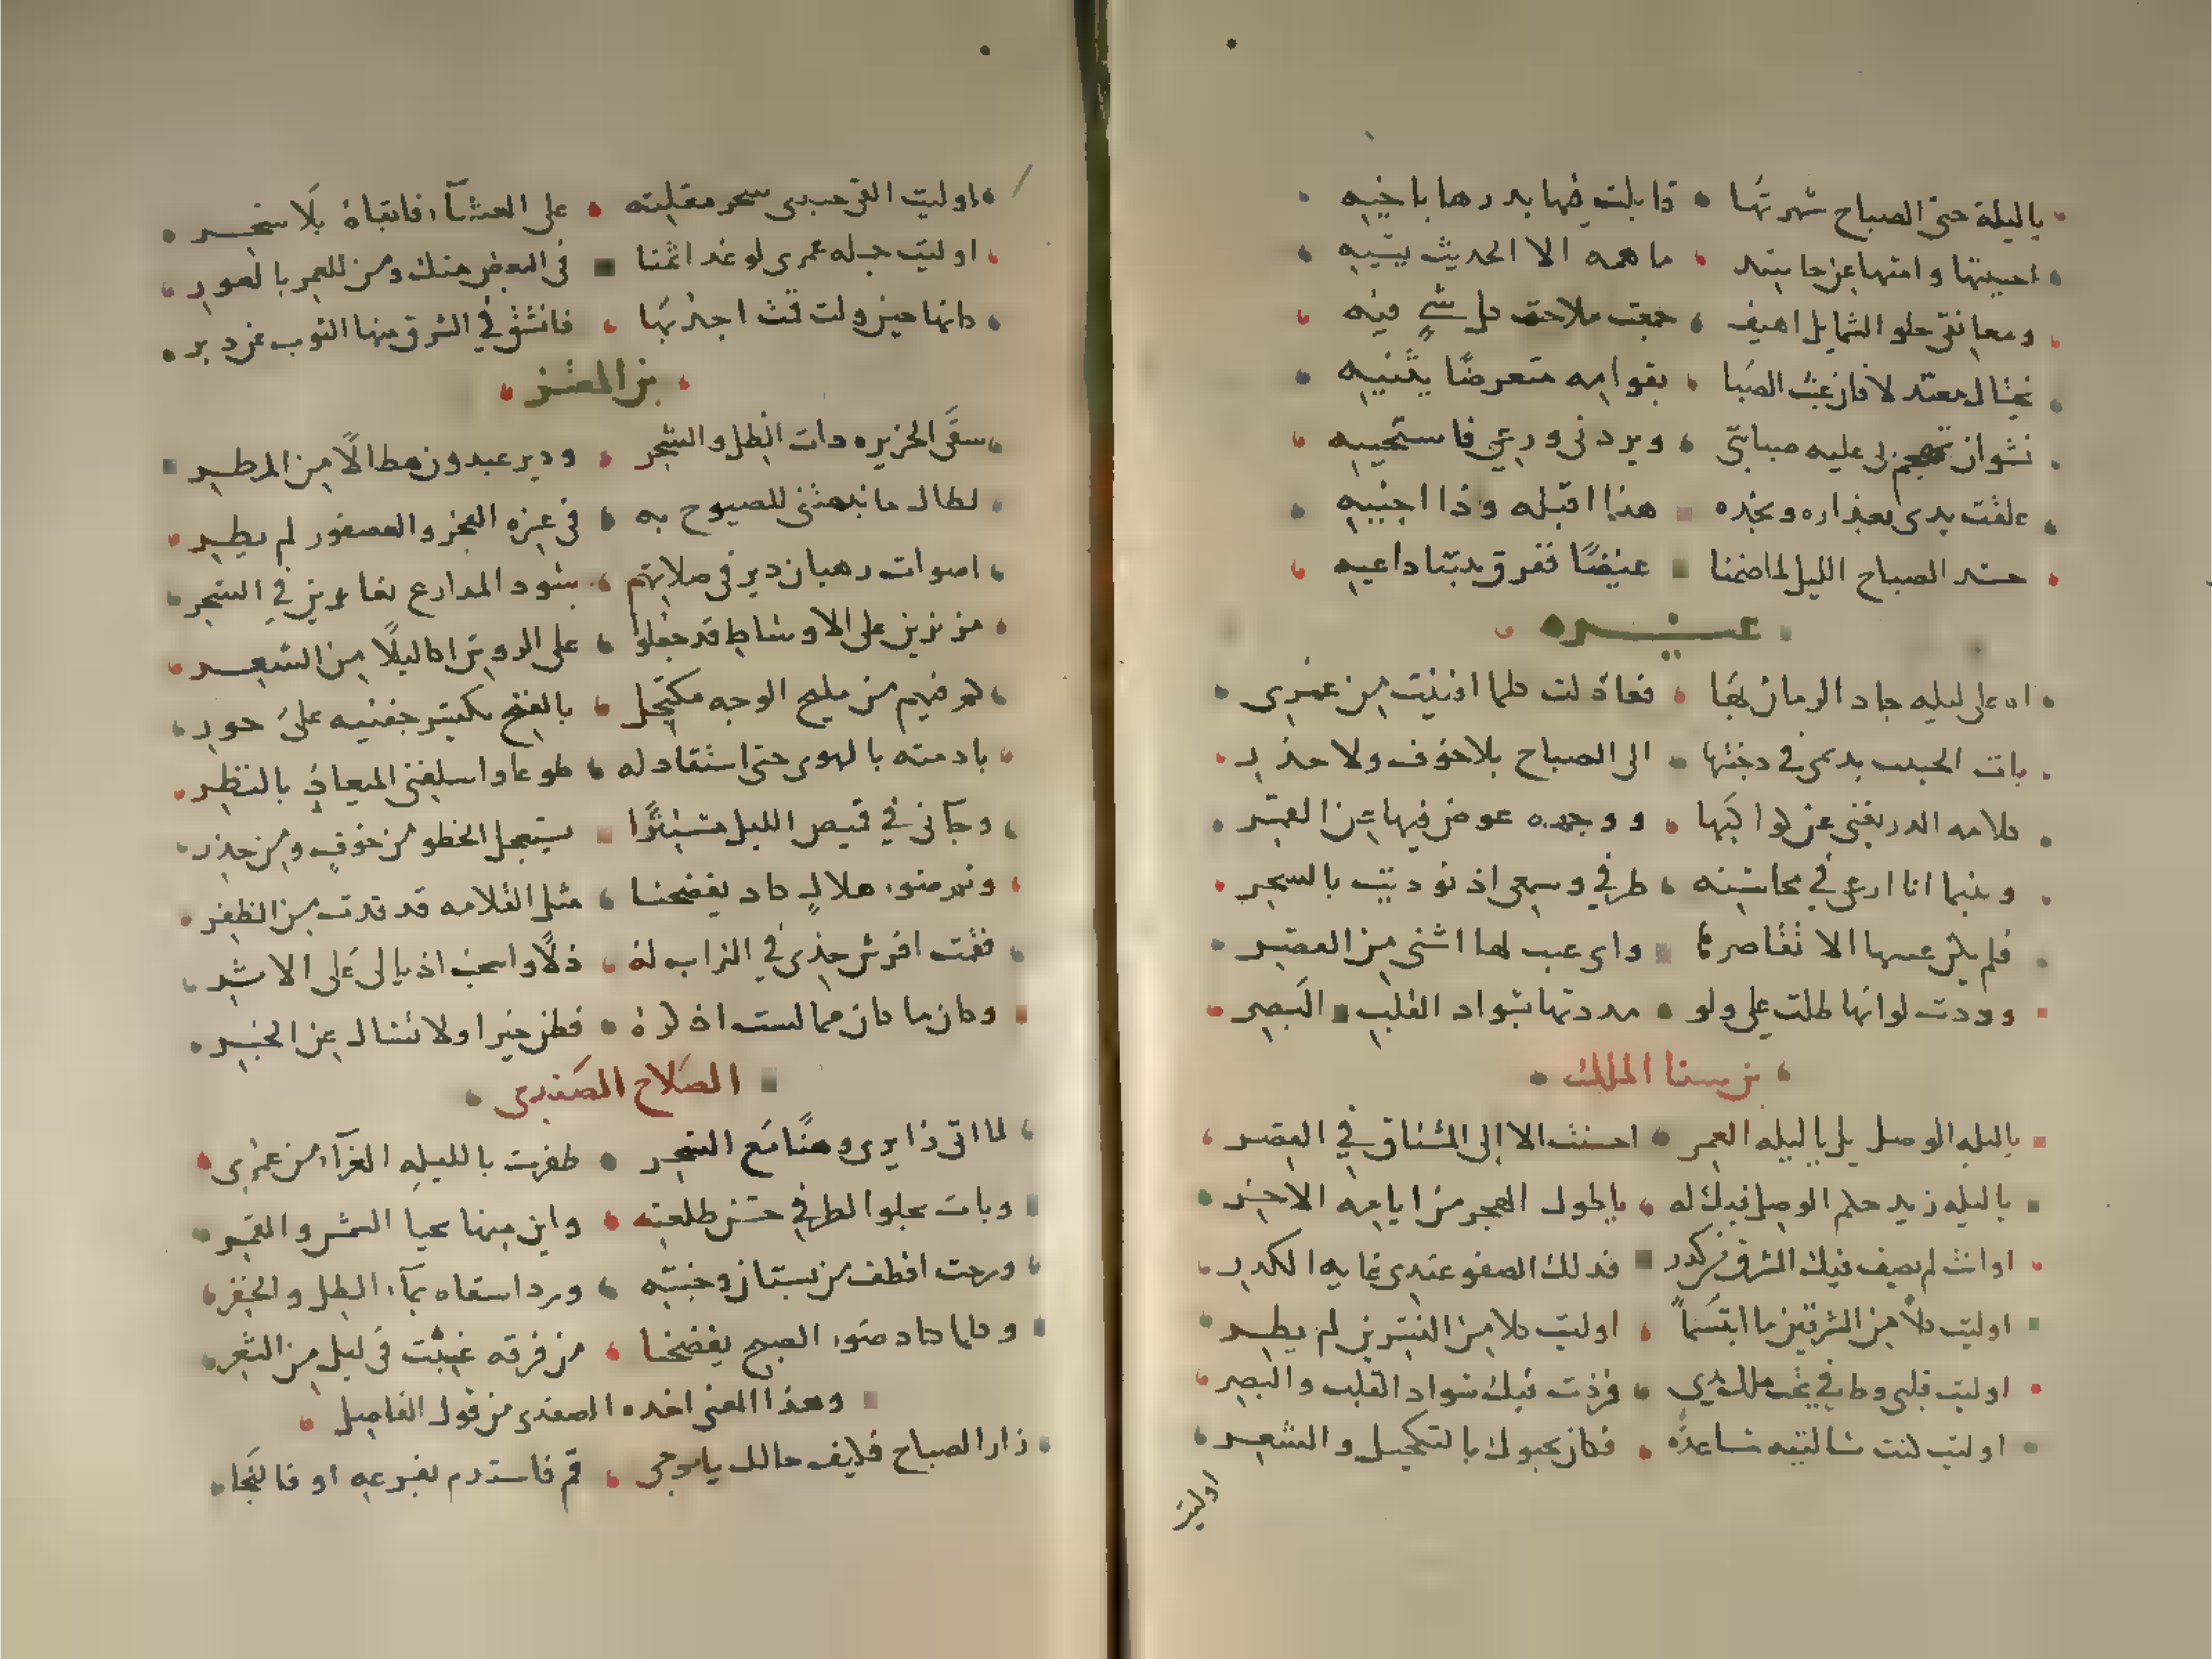 ياليلة حتى الصباح سهرتها قابلت فيها بدرها باخيه
احييتها وامتها عن حاسد ما همه الا الحديث يشيه
ومعانقي حلو الشمايل اهيف جمعت ملاحة كل شي فيه
يختال معتدلا فان عبث الصبا بقوامه متعرضا يثنيه
نشوان تهجم لى عليه صبابتى ويردنى ورعي فاستحييه
علقت يدى بعذاره وبخده هذا اقبله وذا اجنيه
حسد الصباح الليل لما ضمنا غيضا ففرق بيننا داعيه
غيره
اه على ليله جاد الزمان بها فعادلت كلما افنيت من عمرى
بات الحبيب نديمى في دجنتها الى الصباح بلا خوف ولا حذر
كلامه الدر يغنى عن كواكبها ووجهه عوض فيها عن القمر
وبينما انا ارعى في محاسنه طرفي وسمعى اذ نوديت بالسحر
فلم يكن عيبها الا تقاصرها واى عيب لها اشنى من القصر
وددت لو انها طالت على ولو مددتها بسواد القلب البصر
بن سنا الملك
ياليلة الوصل بل ياليله العمر احسنت الا الى المشتاق في القصر
ياليله زيد حكم الوصل فيك له ياطول الهجر من ايامه الاخر
اوليت لم يصف فيك الشرق من كدر فذلك الصفو عندى غايه الكدر
اوليت كلا من الشرقين ما ابتسما اوليت كلا من النسرين لم يطر
اوليت قلبى وطرفي تحت ملك يدي فزدت فيك سواد القلب والبصر
اوليت كنت سالتيه مساعدة فكان يحبوك بالتكحيل والشعر
اوليت
اوليت القى حبيبى سحر مقلته على العشآء فابقاه بلا سحر
اوليت جمله عمرى لو غدا ثمنا في البعض منك ومن للعمى بالعور
كانها حين ولت قمت اجذبها فانشق في الشرق منها الثوب عن دبر
بن المعتز
سقى الجزيره ذات الظل والشجر ودير عبدون هطالا من المطر
لطال ما نبهتنى للصبوح به في غره الفجر والعصفور لم يطر
اصوات رهبان دير في صلاتهم سود المدارع نعارين في السحر
مزنرين على الاوساط قد جعلوا على الروس اكاليلا من الشعر
كم فيهم من مليح الوجه مكتحل بالغنج يكسر جفنيه على حور
بادمته بالهوى حتى استقاد له طوعا واسلفنى الميعاد بالنظر
وجآنى في قميص الليل مستترا يستعجل الخطو من خوف ومن حذر
ونم ضوء هلال كاد يفضحنا مثل القلامه قد قدت من الظفر
فقمت افرش خدى في التراب له ذلا واسحب اذيالى على الاثر
وكان ما كان مما لست اذكره فظن خيرا ولا تسال عن الخبر
الصلاح الصفدى
لما اتى زايرى وهنا مع السحر ظفرت بالليله الغرآء من عمرى
وبات يجلوا لطرفي حسن طلعته واين منها محيا الشمس والقمر
ورحت اقطف من بستان وجنته وردا سقاه بمآء الطل والخفر
وكلما كاد ضوء الصبح يفضحنا من فرقه غيبت في ليل من الشعر
وهذا المعنى اخذه الصفدى من قول الفاضل
زار الصباح فكيف حالك يا دجى قم فاستذم بفرعه او فالنجا